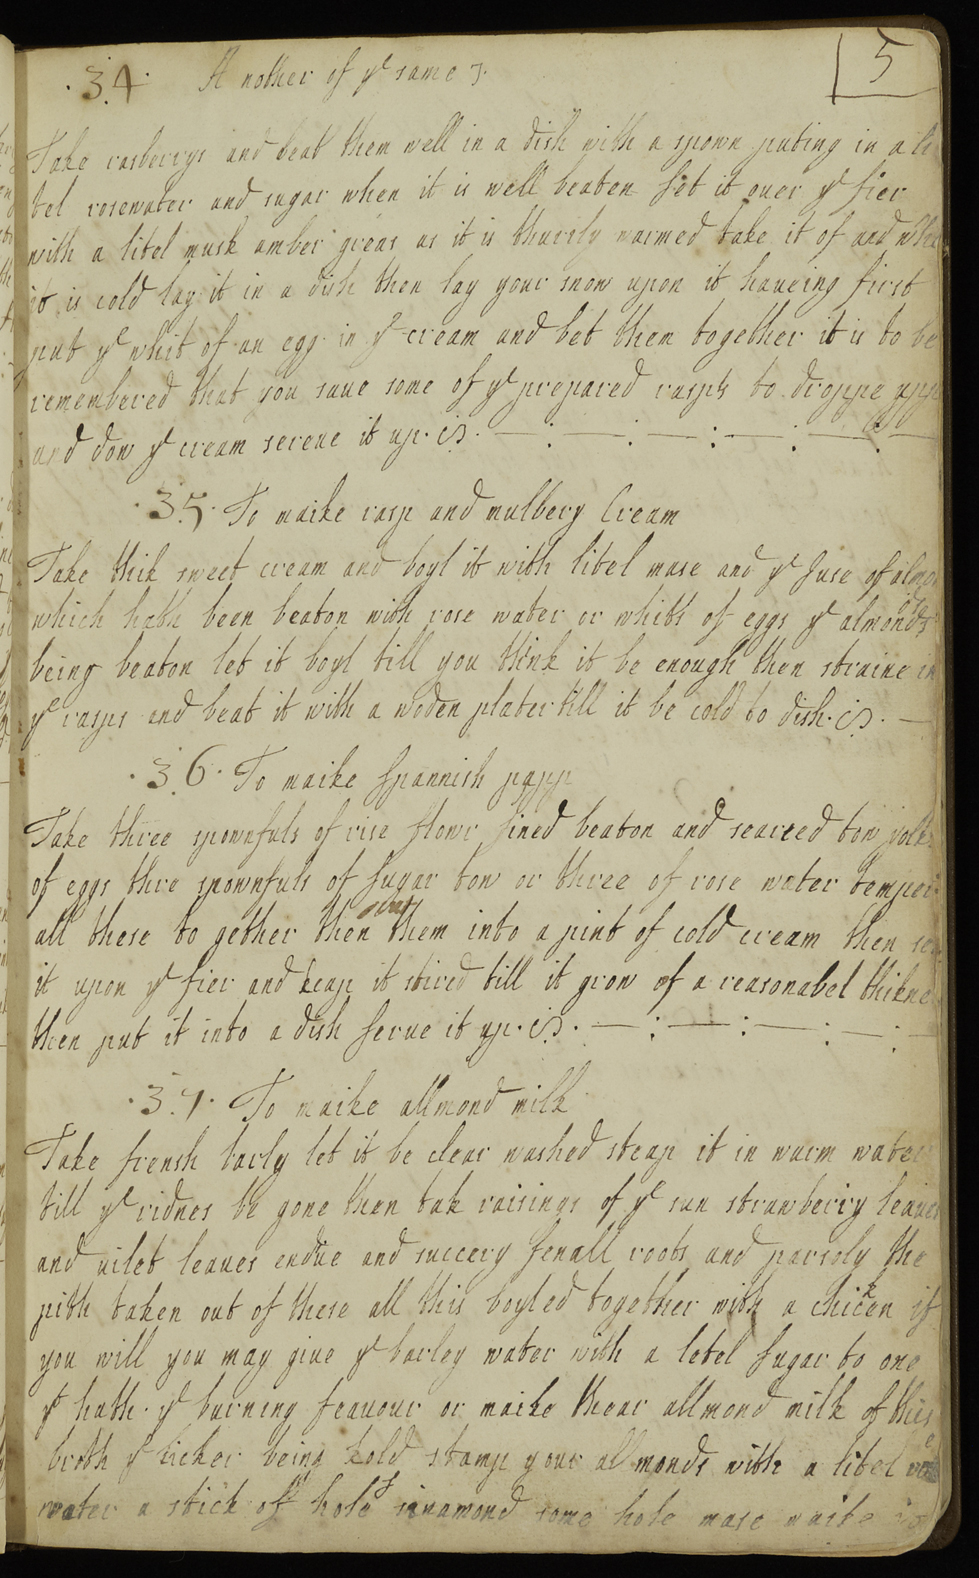 5
.34. A nother of ye same
Take rasberrys and beat them well in a dish with a spown puting in a li
tel rosewater and sugar when it is well beaten set it ouer ye fier
with a litel musk amber greas as it is thurrly warmed take it of and whe
it is cold lay it in a dish then lay your snow upon it haueing first
put ye whit of an egg in ye cream and bet them together it is to be
remembered that you saue some of ye prepared rasps to droppe upp
and dow ye cream sereue it up.
.35. To maike rasp and mulbery Cream
Take thik sweet cream and boyl it with litel mase and ye Juse of almo
which hath been beaton with rose water or whits of eggs ye almonds
being beaton let it boyl till you think it be enough then straine in
ye rasps and beat it with a woden plater till it be cold to dish.
.36. To maike spannish papp
Take three spownfuls of rise flowr fined beaton and searced tow yolk
of eggs thre spownfuls of sugar tow or three of rose water temper
all these to gether then put them into a pint of cold cream then
it upon ye fier and keap it stired till it grow of a reasonabel thikne
then put it into a dish serue it up.
.37. To maike allmond milk
Take frensh barly let it be clear washed steap it in warm water
till ye ridnes be gone then tak raisings of ye sun strawberry leaues
and uilet leaues endiue and succery fenall roots and parsoly the
pith taken out of these all this boyled together with a chicken if
you will you may giue ye barley water with a letel sugar to one
yt hath ye burning feauour or maike thear allmond milk of this
broth ye licker being kold stamp your all monds with a litel
water a stick of hole sinamond some hole mase maike